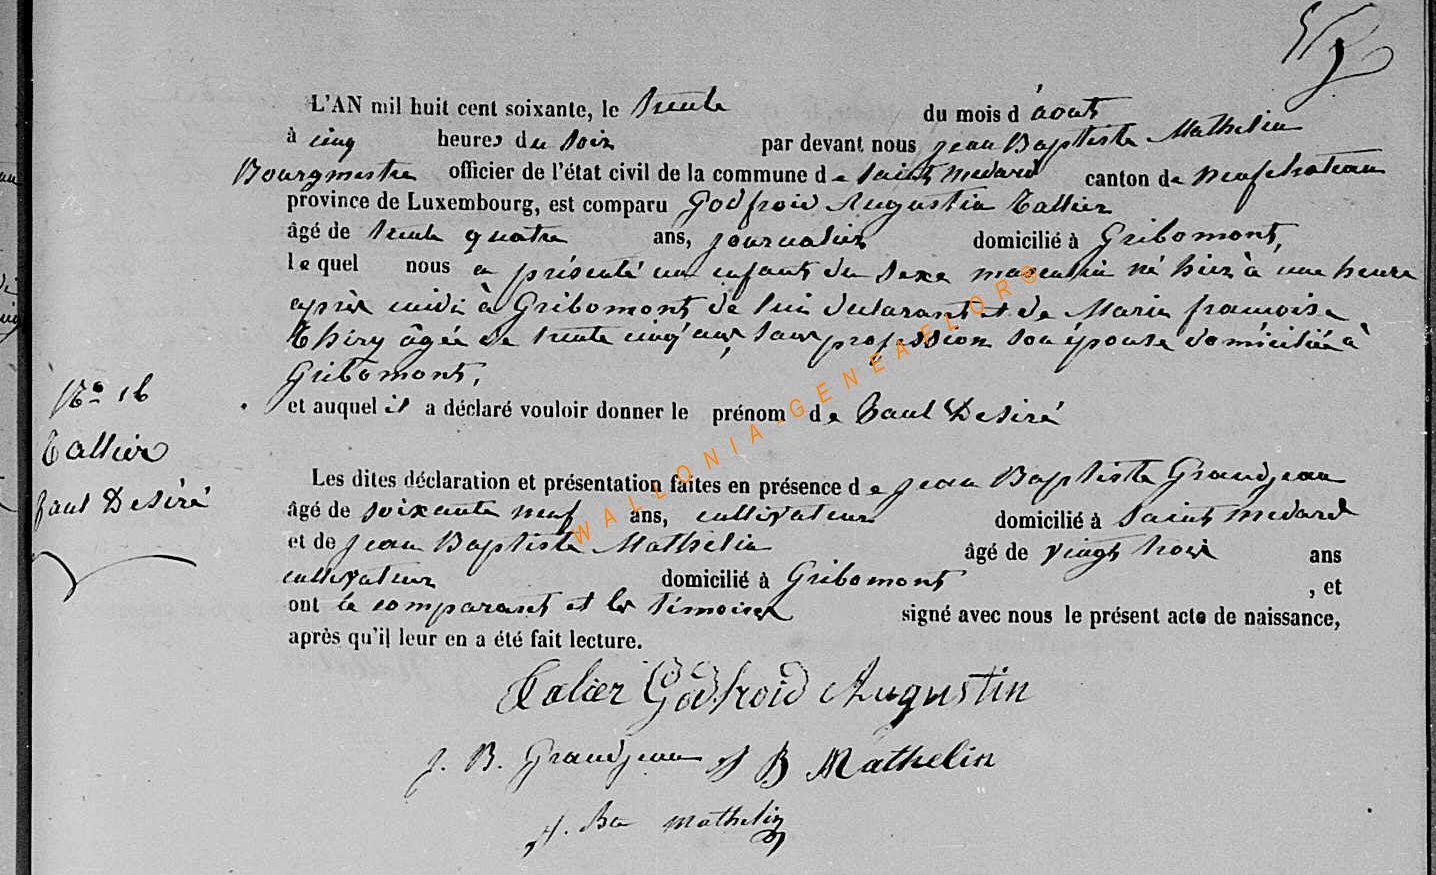 L'AN mil huit cent soixante, le trente du mois d'aout
à cinq heures du soir par devant nous jean Baptiste Mathelin
Bourgmestre officier de l'état civil de la commune de Saint medard canton de neufchateau
province de Luxembourg, est comparu Godfroid Augustin Tallier
âgé de trente quatre ans, journalier domicilié à Gribomont,
lequel nous a présenté un enfant du sexe masculin né hier à une heure
après midi à Gribomont de lui declarant et de Marie francoise
Thiry âgée de trente cinq ans, sans profession son épouse domiciliée à
Gribomont,
et auquel il a déclaré vouloir donner le prénom de Paul Desiré
N° 16
Tallier
Paul Desiré
Les dites déclaration et présentation faites en présence de jean Baptiste Grandjean
âgé de soixante neuf ans, cultivateur domicilié à Saint medard
et de jean Baptiste Mathelin âgé de vingt trois ans
cultivateur domicilié à Gribomont , et
ont le comparant et les témoins signé avec nous le présent acte de naissance,
après qu'il leur en a été fait lecture.
Talier Godfroid Augustin
J. B. Grandjean J B Mathelin
J. Bte mathelin
WALLONIA-GENEAFLORS